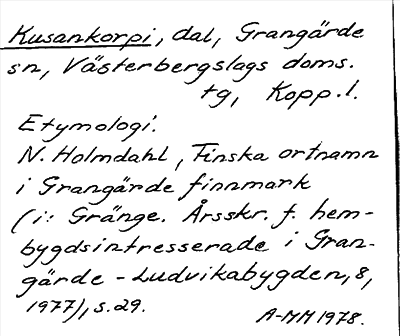 Kusankorpi, dal, Grangärde
sn, Västerbergslags doms.
tg, Kopp.l.
Etymologi.
N. Holmdahl, Finska ortnamn
i Grangärde finnmark
(i: Gränge. Årsskr. f. hem-
bygdsintresserade i Gran-
gärde - Ludvikabygden, 8,
1977), s.29.
A-MM 1978.